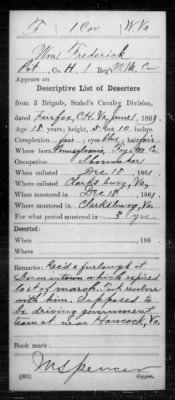 F | 1 Cav | W Va
Wm Frederick
Pvt, Co. H, 1 Reg't W. Va. Cav
Appears on
Descriptive List of Deserters
from 3 Brigade, Stahel's Cavalry Division,
dated Fairfax, C.H. Va. June 1, 1863
Age 18 years; height, 5 feet 10 inches.
Complexion fair; eyes blue; hair fair
Where born Pennsylvania, Fayette Co
Occupation Shoemaker
When enlisted Dec 18, 1861.
Where enlisted Clarksburg, Va,
When mustered in Dec 18, 1861.
Where mustered in Clarksburg, Va.
For what period mustered in 3 yrs
Deserted:
When , 186 .
Where
Remarks: Rec'd a furlough at
Germantown which expired
last of march. Took revolver
with him. Supposed to
be driving government
team at or near Hancock, Va,
Book mark:
M Spencer
Copyist.